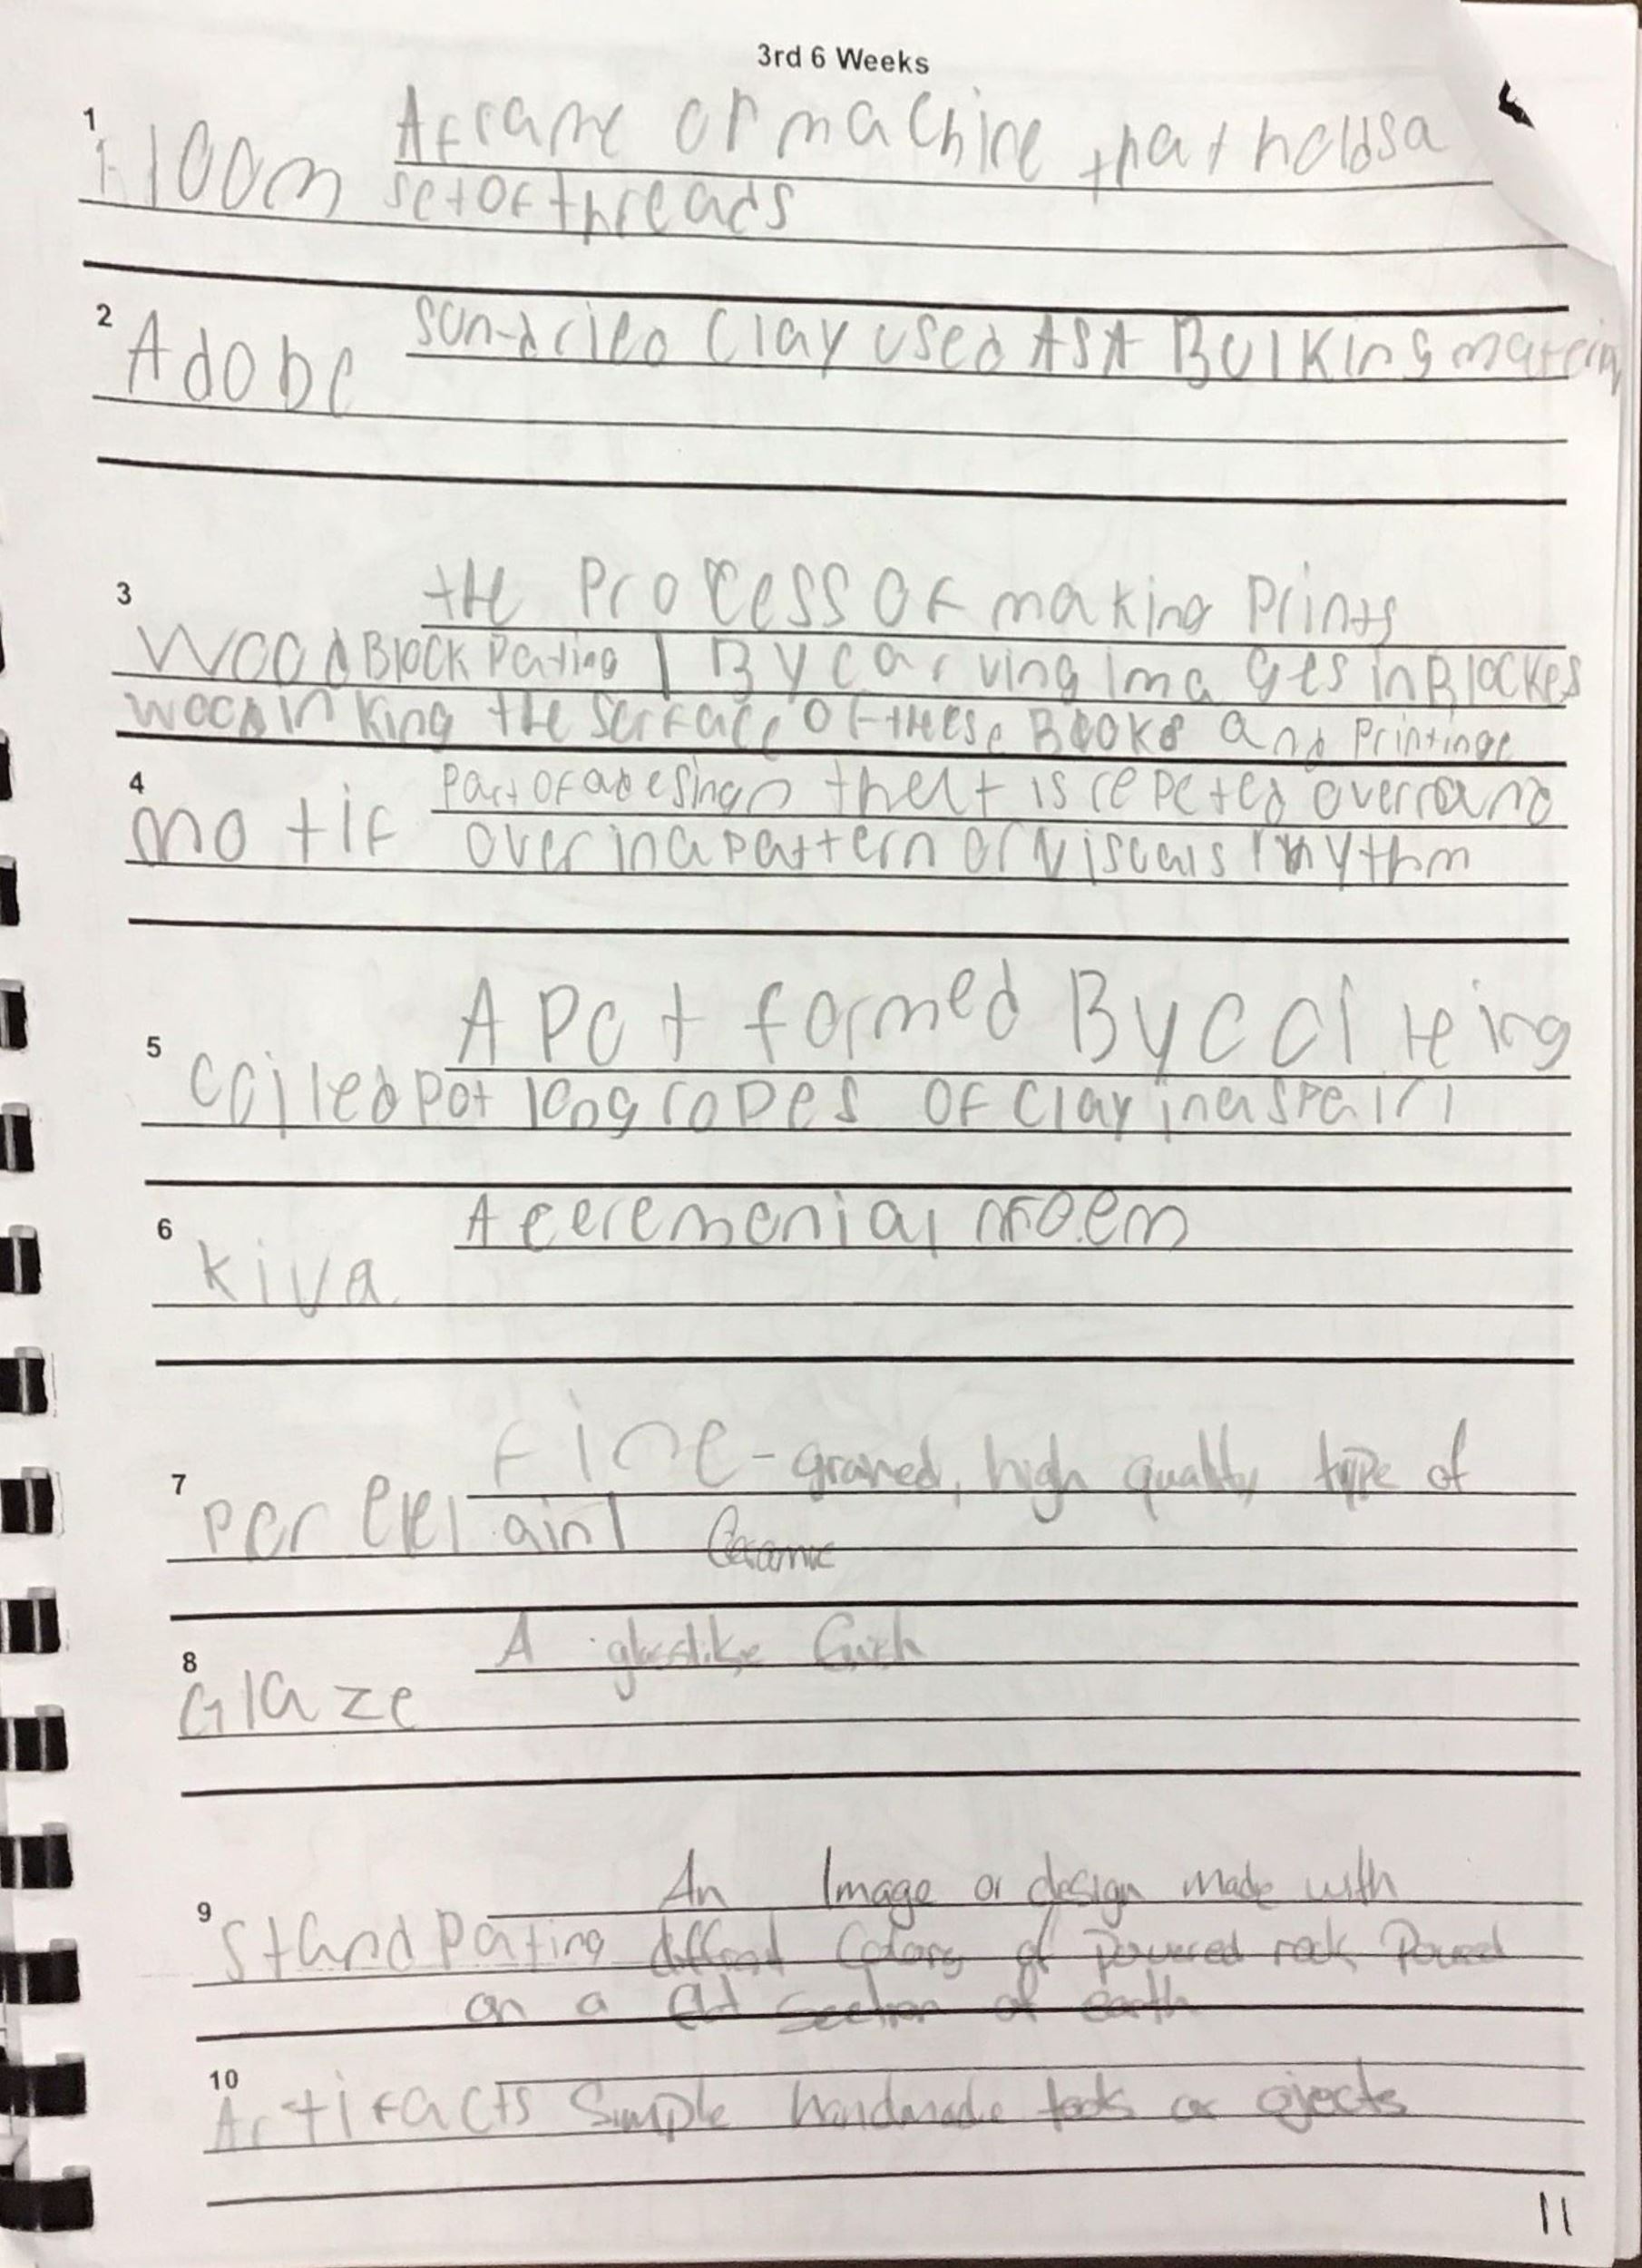 3rd 6 Weeks
1
A frame or machine that holds a
loom set of threads
2
sun-dried clay used AS A BUlKing
Adobe
3
the Process OF making Prints
wood Block Pating By carving Images in Blockes
wood inking the serface OF these Blooks and Printinge
4
part of a desingn thet is repeted over and
motif over in a pattern or visuals rhythm
5
A Pot formed By coileing
coiled pot long ropes OF Clay in a
6
A ceremonial
kiva
7
Fine-grained, high quality type of
Ceramic
8
A glasslike finish
Glaze
9
An Image or design made with
Stand Pating different Colors of powered rock Poured
on a flat section of earth
10
Artifacts Simple handmade tools or ojects
11